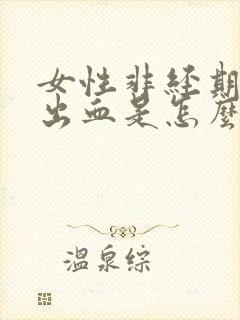 女性非经期
出血是怎麼
温泉综